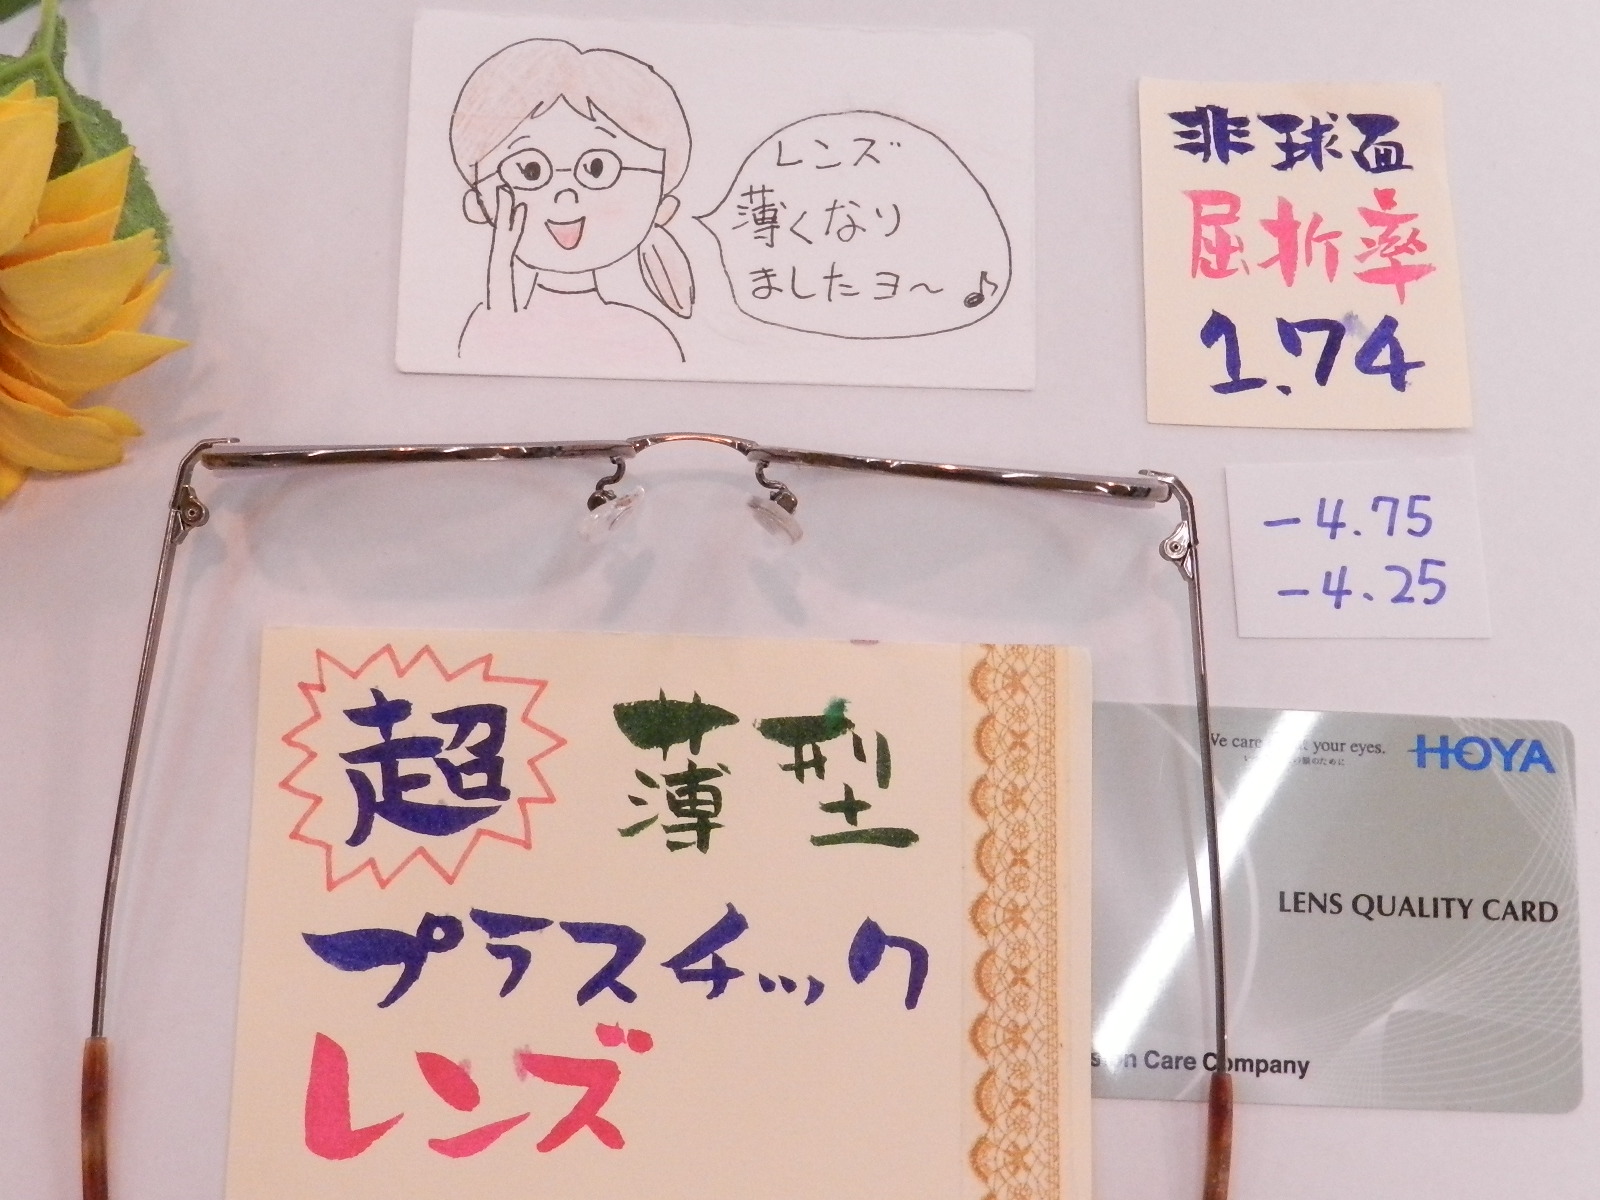 レンズ
薄くなり
ましたヨ〜♪
非球面
屈折率
1.74
-4.75
-4.25
超薄型
プラスチック
レンズ
We care your eyes.
のために
HOYA
LENS QUALITY CARD
Care Company